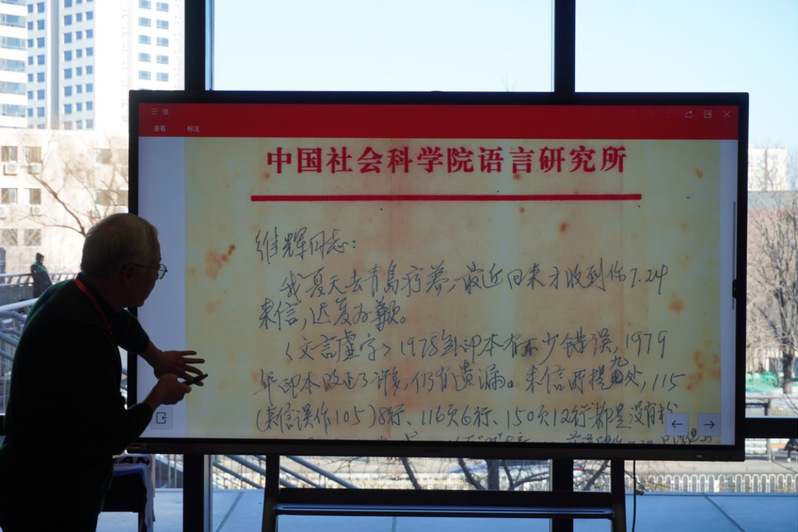 查看 标注
中国社会科学院语言研究所
维辉同志:
我夏天去青岛疗养,最近回来才收到你7.24
来信,迟复为歉。
《文言虚字》1978年印本有不少错误,1979
年印本改正了许多,仍有遗漏。来信所提九处,115
(来信误作105)8行、116页6行、150页12行都是没有